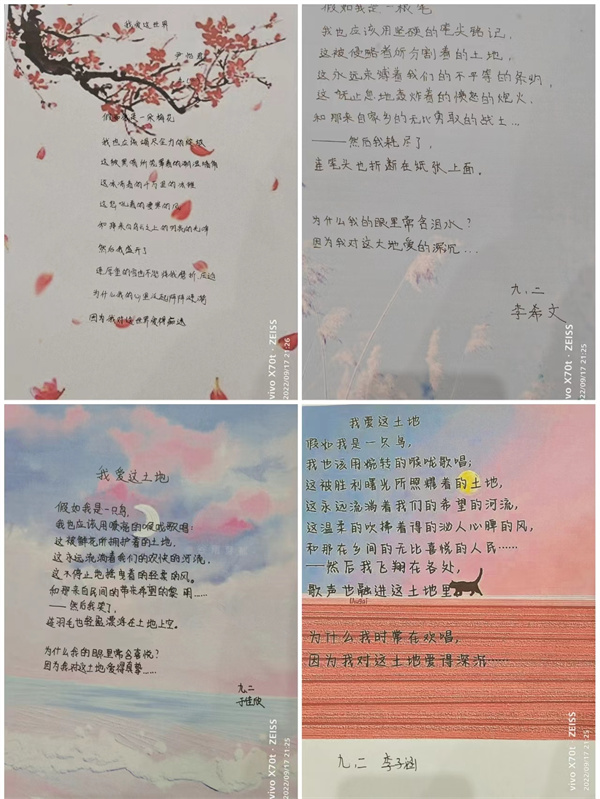 我爱这世界
假如我是一朵梅花
我也应该竭尽全力的绽放
然后我盛开了
为什么我的心里泛起阵阵涟漪
因为我对这世界爱得
vivo X70t · ZEISS
2022/09/17 21:26
假如我是一枚笔
我也应该用坚硬的笔尖铭记，
这被侵略者所分割着的土地，
这永远束缚着我们的不平等的条约，
这无止息地轰炸着的愤怒的炮火，
和那来自家乡的无比勇敢的战士…
——然后我耗尽了，
连笔头也折断在纸张上面。
为什么我的眼里常含泪水？
因为我对这大地爱的深沉…
九.二
李希文
vivo X70t · ZEISS
2022/09/17 21:25
我爱这土地
假如我是一只鸟，
我也应该用嘹亮的喉咙歌唱：
这被鲜花所拥护着的土地，
这永远流淌着我们的欢快的河流，
这不停止地摇曳着的轻柔的风，
和那来自民间的带花希望的黎明……
——然后我笑了，
连羽毛也轻盈漂浮在土地上空。
为什么我的眼里常含喜悦？
因为我对这土地爱得真挚……
九.二
于佳欣
vivo X70t · ZEISS
2022/09/17 21:25
我爱这土地
假如我是一只鸟，
我也该用婉转的喉咙歌唱；
这被胜利曙光所照耀着的土地，
这永远流淌着我们的希望的河流，
这温柔的吹拂着得的沁人心脾的风，
和那在乡间的无比喜悦的人民……
—然后我飞翔在各处，
歌声也融进这土地里
为什么我时常在欢唱，
因为我对这土地爱得深沉……
九.二 李子涵
vivo X70t · ZEISS
2022/09/17 21:25